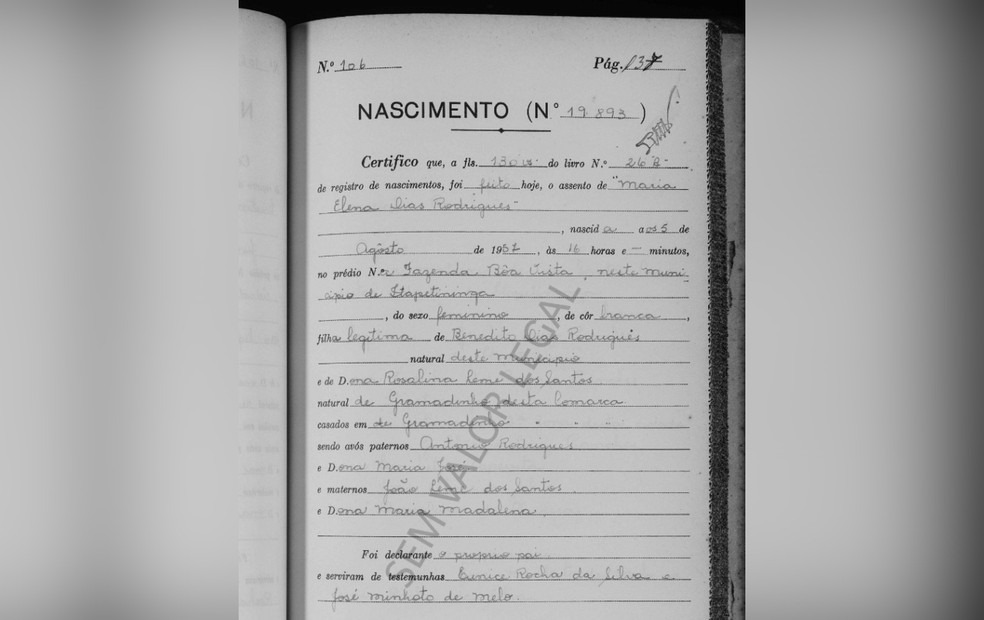 N.º 106 Pág. 137
NASCIMENTO (N° 19.893)
Certifico que, a fls. 130 v. do livro N.º 26 B-
de registro de nascimentos, foi feito hoje, o assento de "Maria
Elena Dias Rodrigues"
, nascida aos 5 de
Agôsto de 1957, às 16 horas e — minutos,
no prédio N.º Fazenda Bôa Vista, neste muni
cipio de Itapetininga
, do sexo feminino, de côr branca,
filha legitima de Benedito Dias Rodrigues
natural deste municipio
e de Dona Rosalina Leme dos Santos
natural de Gramadinho desta Comarca
casados em de Gramadinho
sendo avós paternos Antonio Rodrigues
e Dona Maria José
e maternos João Leme dos Santos
e Dona Maria Madalena
Foi declarante o proprio pai
e serviram de testemunhas Eunice Rocha da Silva e
José Minhoto de Melo.
SEM VALOR LEGAL